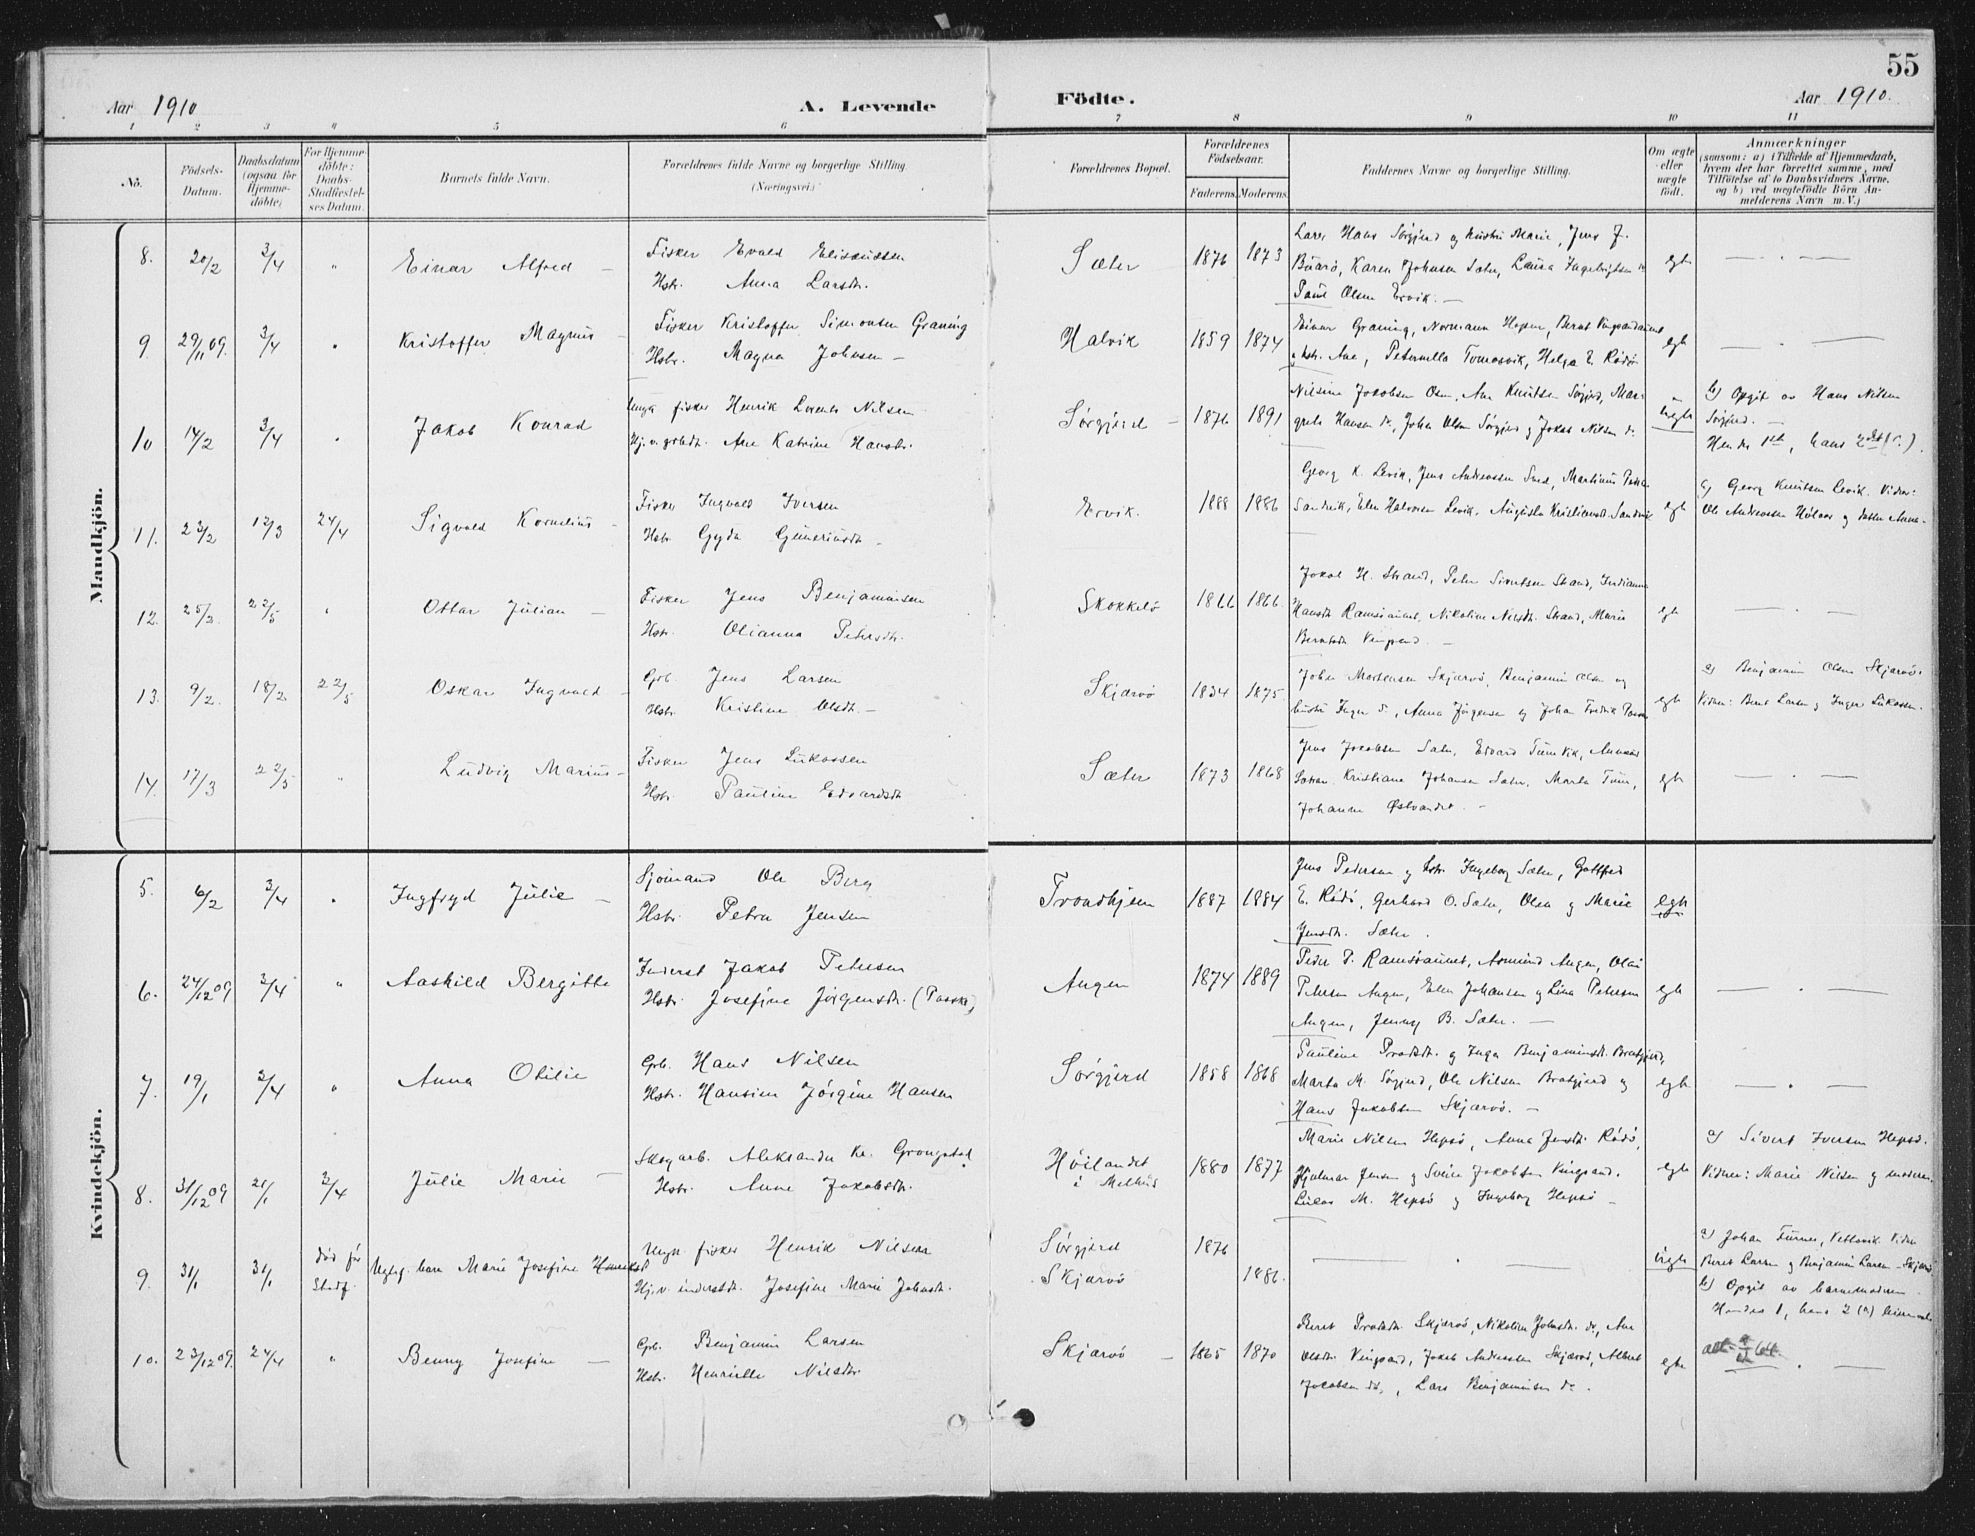 55
Aar 1910 A. Levende Födte. Aar 1910.
1 2 3 4 5 6 7 8 9 10 11
No. Födsels-Datum. Daabsdatum (ogsaa for Hjemmedöbte) For Hjemmedöbte: Daabs-Stadfæstelses Datum. Barnets fulde Navn. Forældrenes fulde Navne og borgerlige Stilling. (Næringsvei) Forældrenes Bopæl. Forældrenes Födselsaar. Faderens. Moderens. Faddernes Navne og borgerlige Stilling. Om ægte eller uægte födt. Anmærkninger
(saasom: a) i Tilfælde af Hjemmedaab,
hvem der har forrettet samme, med
Tilföielse af to Daabsvidners Navne,
og b) ved uægtefödte Börn Anmelderens Navn m. V.)
Mandkjön.
8. 20/2 3/4 " Einar Alfred - Fisker Evald Eliseussen
Hstr. Anna Larsdtr.
Sæter 1876 1873
Lærer Hans Sørgjerd og hustru Marie, Jens J.
Buarö, Karen Johnsen Sæter, Laura Ingebrigtsen do
Paul Olsen Ervik. -
egte
9. 29/11 09. 3/4 " Kristoffer Magnus - Fisker Kristoffer Simonsen Graning
Hstr. Magna Johnsen -
Halvik 1859 1874
Einar Graning, Normann Hepsø, Bernt Vingsandaunet
og hstr. Ane, Peternella Tomasvik, Helga E. Rödö
egte
10 14/2 3/4 " Jakob Konrad Ungk. fisker Henrik Lorents Nilsen
Pj. v. grbdt. Ane Katrine Hansdtr.
Sørgjerd - 1876 1891
Nilsine Jakobsen Osen, Ane Knutsen Sørgjerd, Margrete Hansen do, Johan Olsen Sørgjerd og Jakob Nilsen do.
uegte
b) Opgit av Hans Nilsen
Sørgjerd. -
Hendes 1st, hans 2det
11. 23/2 12/3 24/4 Sigvald Kornelius - Fisker Ingvald Iversen
Hstr. Gyda Guneriusdtr -
Ervik. 1888 1886
Georg K. Levik, Jens Andreassen Sund, Martinus
Sandvik, Elen Halvorsen Levik, Augusta Kristiansdt. Sandvik
egte
a) Georg Knutsen Levik. Vidner:
Ole Andreassen Holaas og datter Anna -
12. 25/2 22/5 " Ottar Julian - Fisker Jens Benjaminsen
Hstr. Olianna Petersdtr.
Skokkelö 1866 1866.
Jakob H. Strand, Peter Sivertsen Strand, Indianna
Hansdtr Ramsöaunet, Nikoline Nilsdtr. Strand, Marie
Berntsdtr Vingsand -
egte
13. 9/2. 18/2 22/5 Oskar Ingvald - Grb. Jens Larsen
Hstr. Kristine Olsdtr. -
Skjærvö 1834 1875
Johan Mortensen Skjærvö, Benjamin Olsen og
hustru Inger do, Anna Jörgensen og Johan Fredrik
egte
a) Benjamin Olsen Skjærvö.
Vidner: Bernt Larsen og Inger Lukassen.
14. 17/3 22/5 " Ludvig Marius - Fisker Jens Lukassen
Hstr. Pauline Edvardsdtr
Sæter 1873 1868
Jens Jakobsen Sæter, Edvard
Kristiane Johansen Sæter, Marta
Johanna Østvandet. -
egte
Kvindekjön.
5. 6/2 3/4 " Ingfryd Julie - Sjömand Ole Berg
Hstr. Petra Jensen
Trondhjem 1887 1884
Jens Pedersen og hstr. Ingeborg Sæter, Gottfred
E. Rödö, Gerhard O. Sæter, Olea og Marie
Jensdtr. Sæter.
egte
6. 24/12 09 3/4 " Aashild Bergitte Inderst Jakob Petersen
Hstr. Josefine Jörgensdtr.
Angen 1874 1889
Peder P. Ramsöaunet, Asmund Angen, Olai
Petersen Angen, Elen Johansen og Lina Petersen
Angen, Jenny B. Sæter. -
egte
7. 19/1 3/4 " Anna Otilie Grb. Hans Nilsen
Hstr. Hansine Jörgine Hansen
Sørgjerd 1858 1868
Pauline og Inga Benjaminsdt. Bratgjerd,
Marta M. Sørgjerd, Ole Nilsen Bratgjerd og
Hans Jakobsen Skjærvö. -
egte
8. 31/12 09 21/1 3/4 Julie Marie - Skogarb. Aleksander Kr. Grongstad
Hstr. Anne Jakobsdtr.
Höilandet
i Melhus
1880 1877
Marie Nilsen Hepsö, Anna Jensdtr. Rödö,
Hjalmar Jensen og Svein Jakobsen Vingsand.
Lucas M. Hepsö og Ingeborg Hepsö -
egte
a) Sivert Iversen Hepsö.
Vidner: Marie Nilsen og moderen.
9. 31/1 31/1 död för
Stadf.
Uegteg. barn Marie Josefine
Ungk. fisker Henrik Nilsen
Pj. v. inderstdt. Josefine Marie Johnsdtr.
Sørgjerd
Skjærvö
1876
1886.
uegte
a) Johan Furnes, Vidner
Beret Larsen og Benjamin Larsen - Skjærvö
b) Opgit av barnemoderen.
Hendes 1, hans 2
10. 23/12 09. 24/4 " Benny Josefine - Grb. Benjamin Larsen
Hstr. Henriette Nilsdtr.
Skjærvö - 1865 1870
Beret Skjærvö, Nikoline Johnsdtr. do, Ane
Olsdtr. Vingsand, Jakob Andreassen Skjærvö, Albert
Jakobsen do, Lars Benjaminsen do.
egte